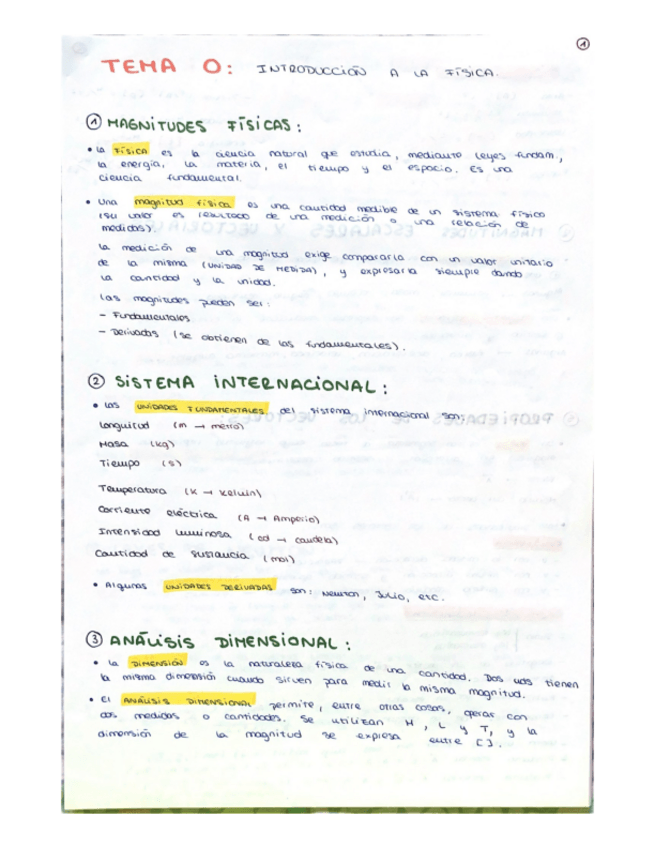 1
TEMA 0: INTRODUCCIÓN A LA FÍSICA.
① MAGNITUDES FÍSICAS:
• La FÍSICA es la ciencia natural que estudia, mediante leyes fundam.,
la energía, la materia, el tiempo y el espacio. Es una
ciencia fundamental.
• Una magnitud física es una cantidad medible de un sistema físico
(su valor es resultado de una medición o una relación de
medidas).
La medición de una magnitud exige compararla con un valor unitario
de la misma (UNIDAD DE MEDIDA), y expresarla siempre dando
la cantidad y la unidad.
Las magnitudes pueden ser:
- Fundamentales
- Derivadas (se obtienen de las fundamentales).
② SISTEMA INTERNACIONAL:
• Las UNIDADES FUNDAMENTALES del sistema internacional son:
Longuitud (m → metro)
Masa (kg)
Tiempo (s)
Temperatura (K → Kelvin)
Corriente eléctrica (A → Amperio)
Intensidad luminosa (cd → candela)
Cantidad de sustancia (mol)
• Algunas UNIDADES DERIVADAS son: Newton, Julio, etc.
③ ANÁLISIS DIMENSIONAL:
• La DIMENSIÓN es la naturaleza física de una cantidad. Dos uds tienen
la misma dimensión cuando sirven para medir la misma magnitud.
• El ANÁLISIS DIMENSIONAL permite, entre otras cosas, operar con
dos medidas o cantidades. Se utilizan M, L y T, y la
dimensión de la magnitud se expresa entre [ ].